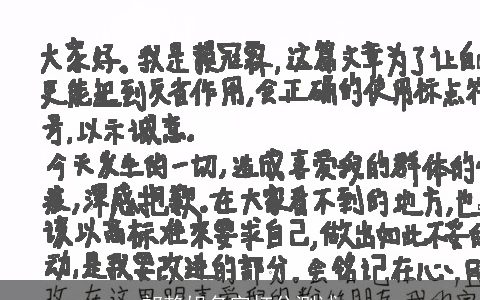 大家好。我是赖冠霖,这篇文章为了让自
更能起到反省作用,会正确的使用标点符
号,以示诚意。
今天发生的一切,造成喜爱我的群体的
,深感抱歉。在大家看不到的地方,也
该以高标准来要求自己,做出如此不妥的
动,是我要改进的部分。会铭记在心,且
改.在这里